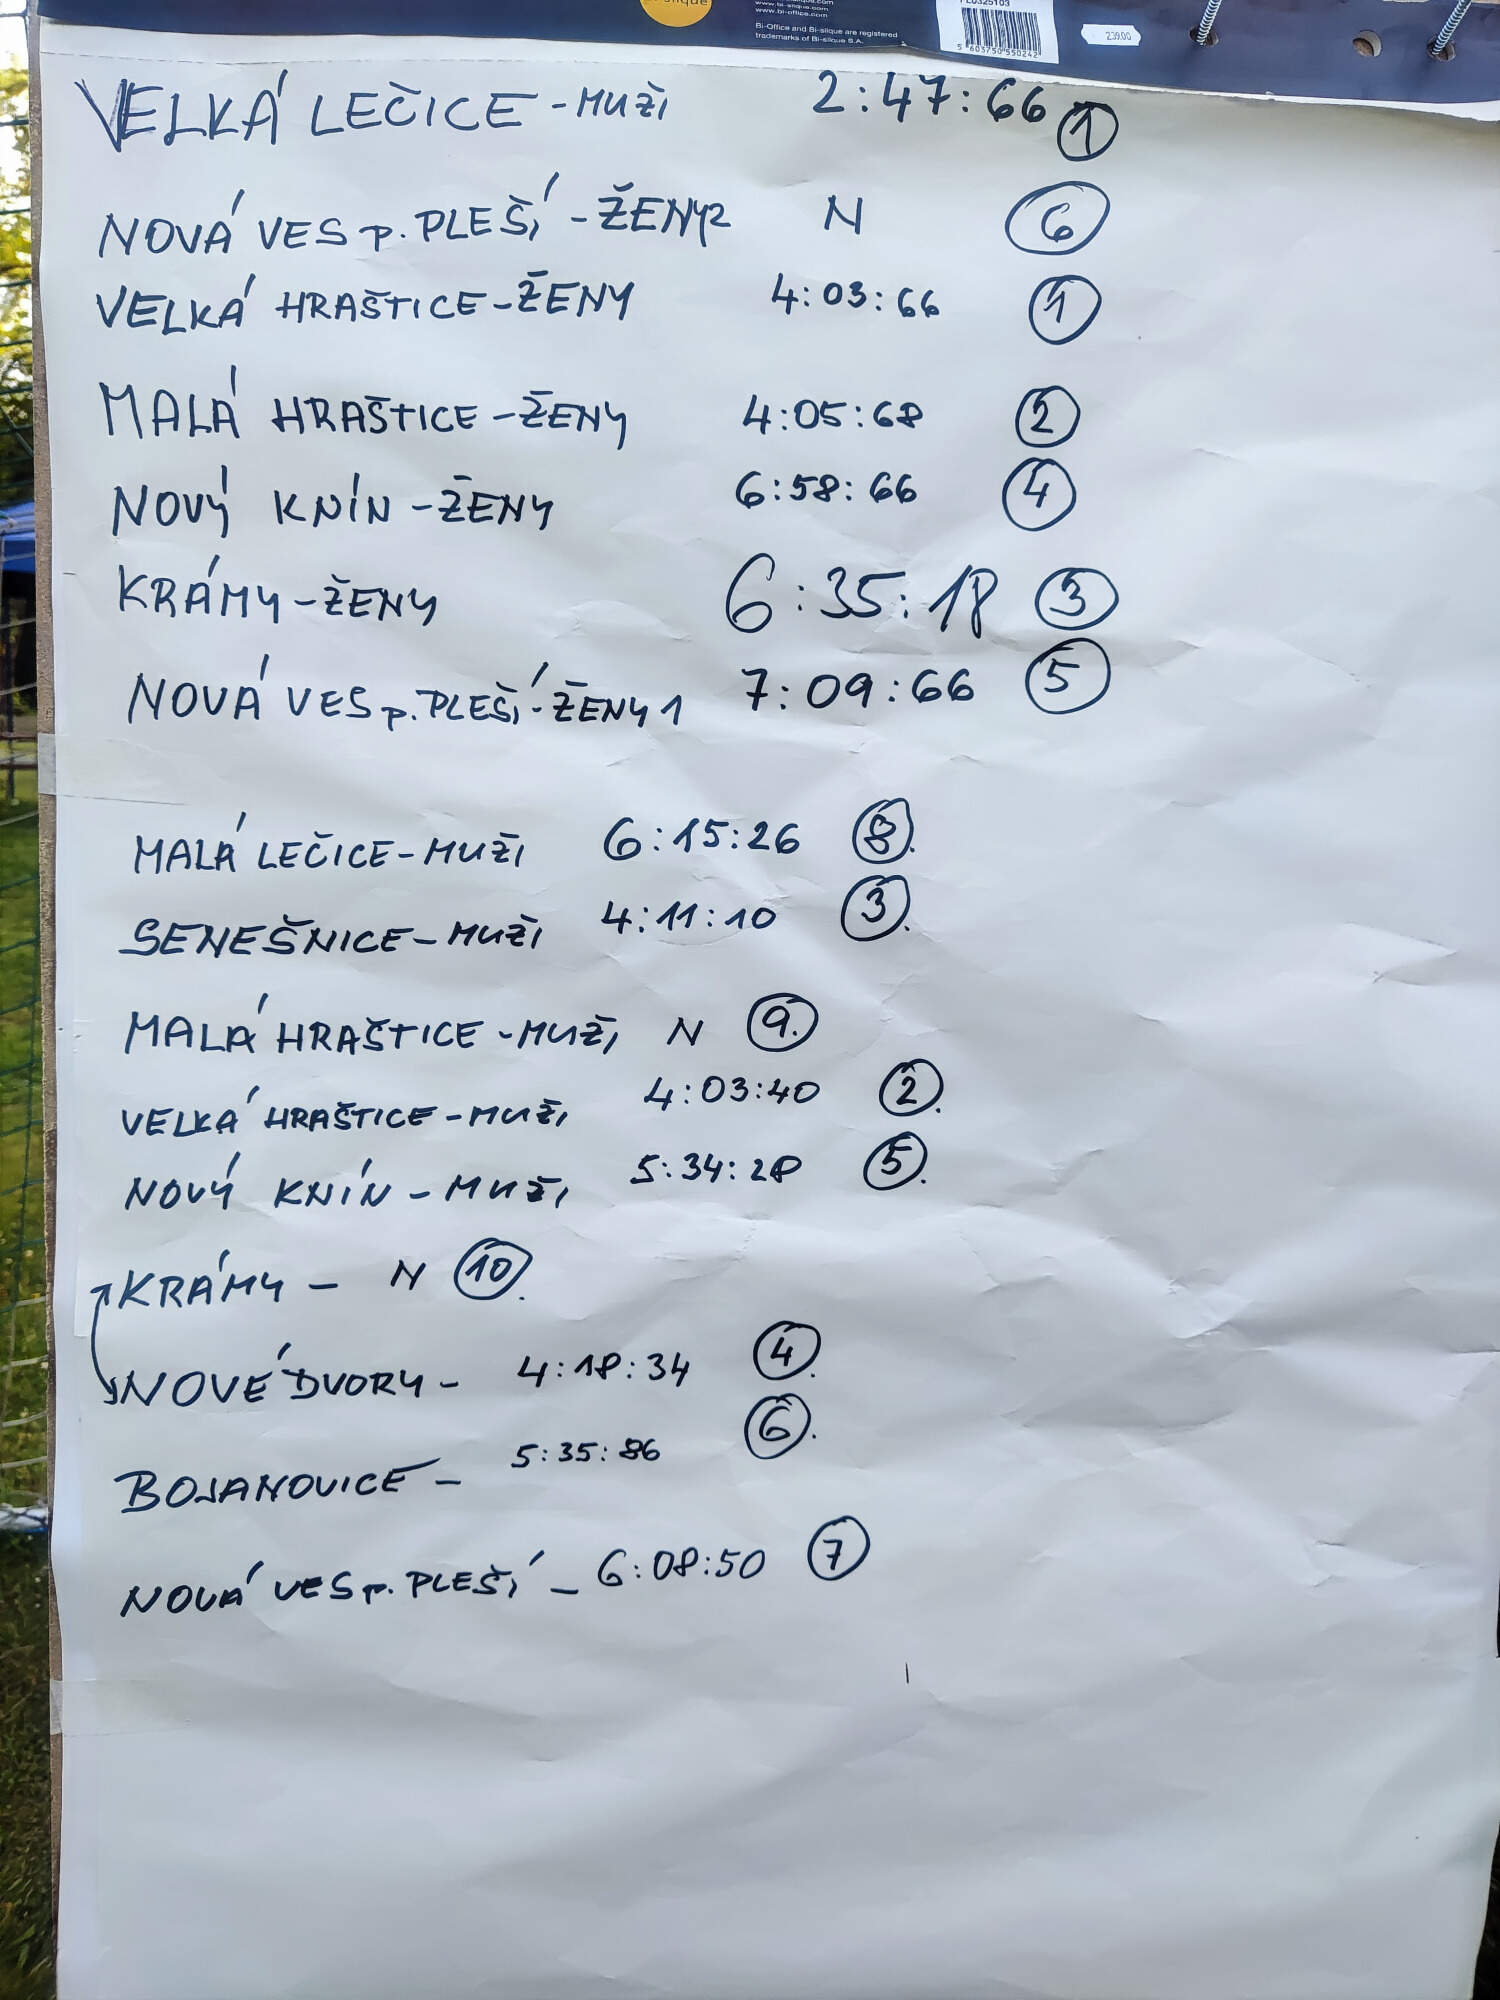 slique
www.bi-slique.com
www.bi-office.com
Bi-Office and Bi-silque are registered
trademarks of Bi-silque S.A.
FL0325103
5 603750 550242
239.00
VELKÁ LEČICE - MUŽI 2:47:66 1
NOVÁ VES p. PLEŠÍ - ŽENY 2 N 6
VELKÁ HRAŠTICE - ŽENY 4:03:66 1
MALÁ HRAŠTICE - ŽENY 4:05:68 2
NOVÝ KNÍN - ŽENY 6:58:66 4
KRÁMY - ŽENY 6:35:18 3
NOVÁ VES p. PLEŠÍ - ŽENY 1 7:09:66 5
MALÁ LEČICE - MUŽI 6:15:26 8.
SENEŠNICE - MUŽI 4:11:10 3.
MALÁ HRAŠTICE - MUŽI N 9.
VELKÁ HRAŠTICE - MUŽI 4:03:40 2.
NOVÝ KNÍN - MUŽI 5:34:28 5.
KRÁMY - N 10.
NOVÉ DVORY - 4:18:34 4.
BOJANOVICE - 5:35:86 6.
NOVÁ VES p. PLEŠÍ - 6:08:50 7